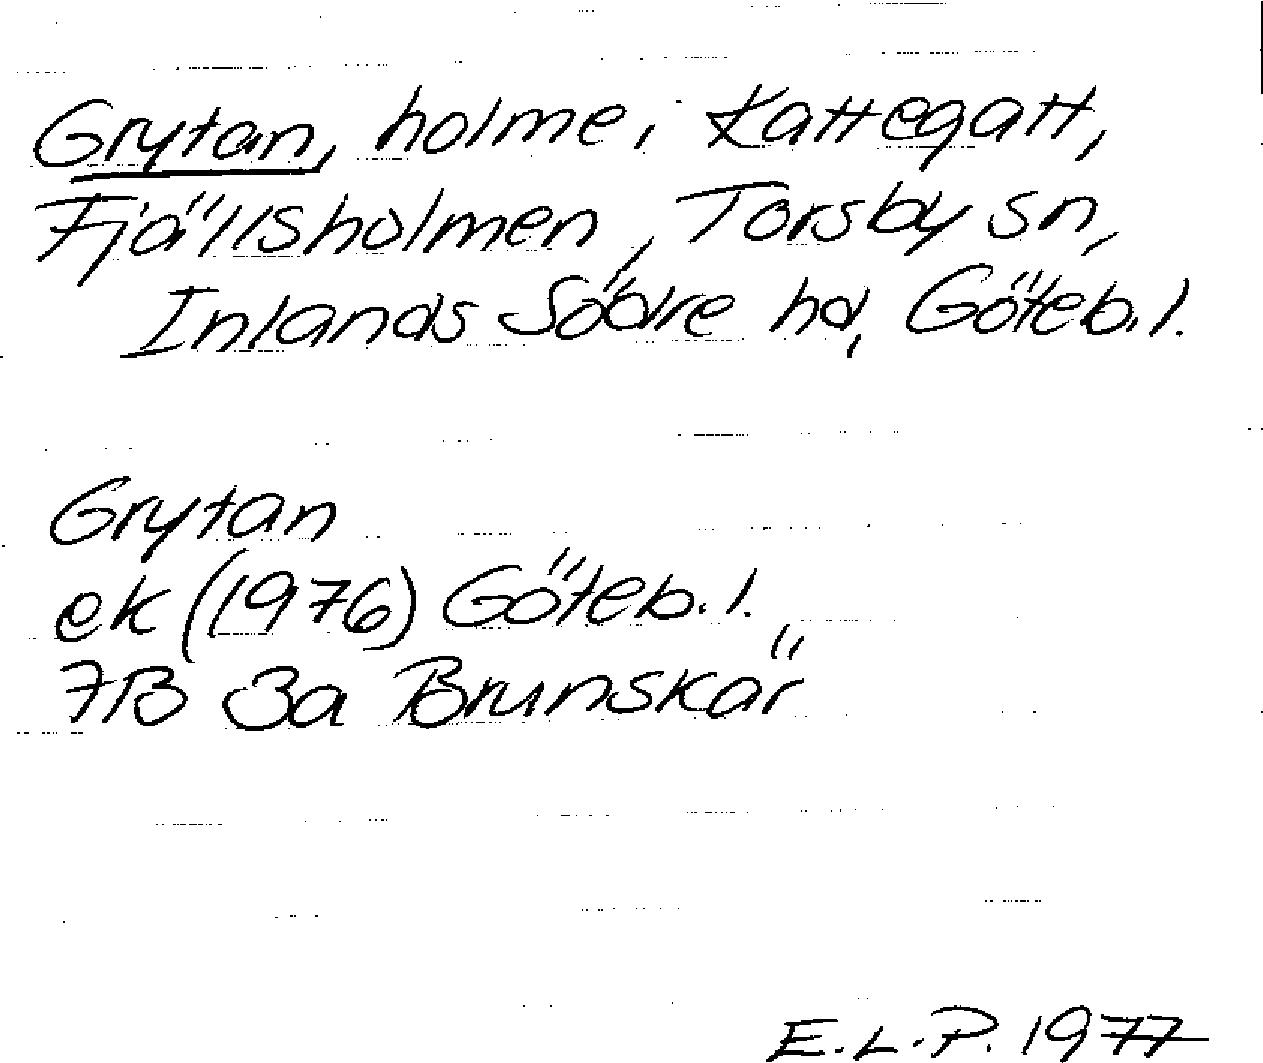 Grytan, holme, i Kattegatt,
Fjällsholmen, Torsby sn,
Inlands Södre hd, Göteb. l.
Grytan
ek (1976) Göteb. l.
7B 3a Brunskär
E.L.P. 1977